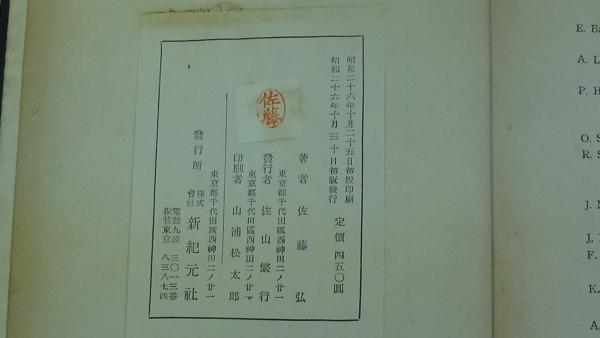 昭和二十六年十月二十五日初版印刷
昭和二十六年十月三十日初版発行
定價 四五〇圓
佐藤
著者 佐藤弘
東京都千代田區西神田二ノ廿一
発行者 佐山繁行
東京都千代田區西神田二ノ廿一
印刷者 山浦松太郎
東京都千代田區西神田二ノ廿一
發行所 株式會社 新紀元社
電話九段 三〇一三番
振替東京 八三八七四
E. Ba
A. L
P. H
O. S
R. S
J. N
J.
F.
K.
A.